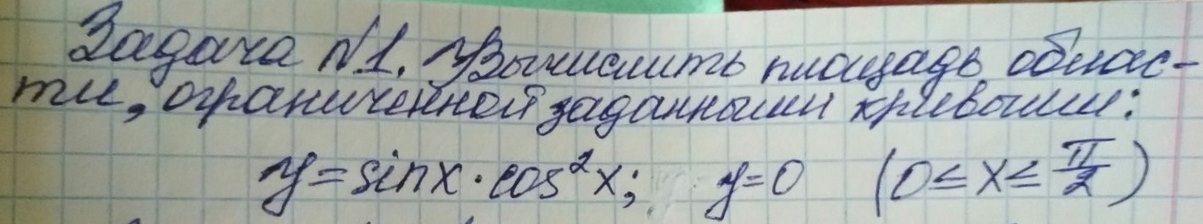 Задача №1. Вычислить площадь облас-
ти, ограниченной заданными кривыми:
y=sinx·cos²x; y=0 (0≤x≤π/2)